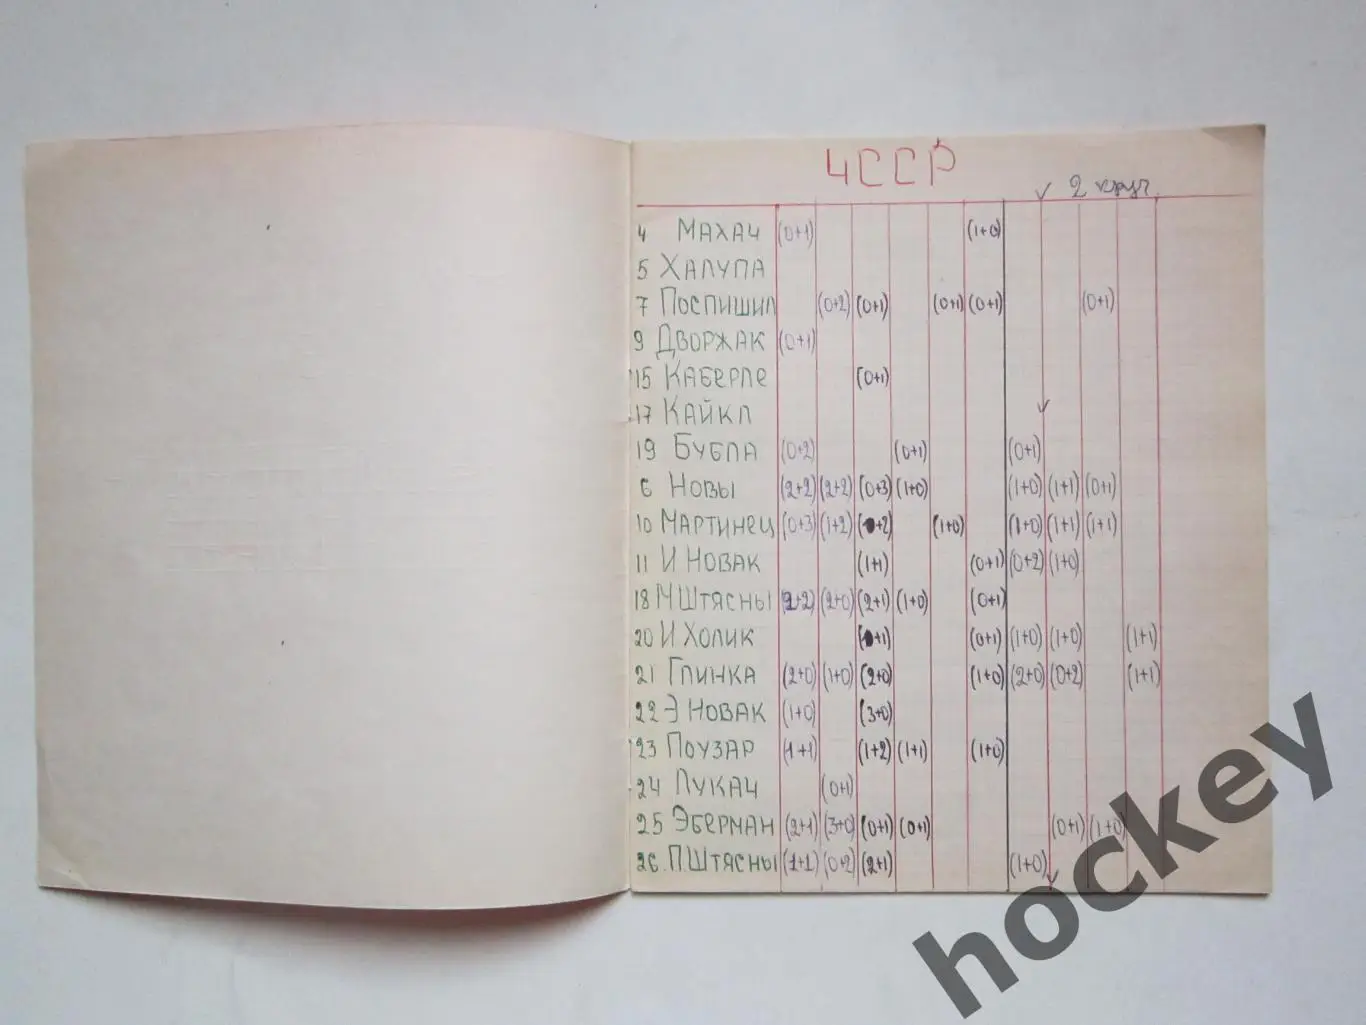 ЧССР
2 круг.
4 МАХАЧ (0+1) (1+0)
5 ХАЛУПА
7 ПОСПИШИЛ (0+2) (0+1) (0+1) (0+1) (0+1)
9 ДВОРЖАК (0+1)
15 КАБЕРЛЕ (0+1)
17 КАЙКЛ
19 БУБЛА (0+2) (0+1) (0+1)
6 НОВЫ (2+2) (2+2) (0+3) (1+0) (1+0) (1+1) (0+1)
10 МАРТИНЕЦ (0+3) (1+2) +2) (1+0) (1+0) (1+1) (1+1)
11 И НОВАК (1+1) (0+1) (0+2) (1+0)
18 М ШТЯСНЫ (2+2) (2+0) (2+1) (1+0) (0+1)
20 И ХОЛИК +1) (0+1) (1+0) (1+0) (1+1)
21 ГЛИНКА (2+0) (1+0) (2+0) (1+0) (2+0) (0+2) (1+1)
22 Э НОВАК (1+0) (3+0)
23 ПОУЗАР (1+1) (1+2) (1+1) (1+0)
24 ЛУКАЧ (0+1)
25 ЭБЕРМАН (2+1) (3+0) (0+1) (0+1) (0+1) (1+0)
26. П. ШТЯСНЫ (1+1) (0+2) (2+1) (1+0)
hockey